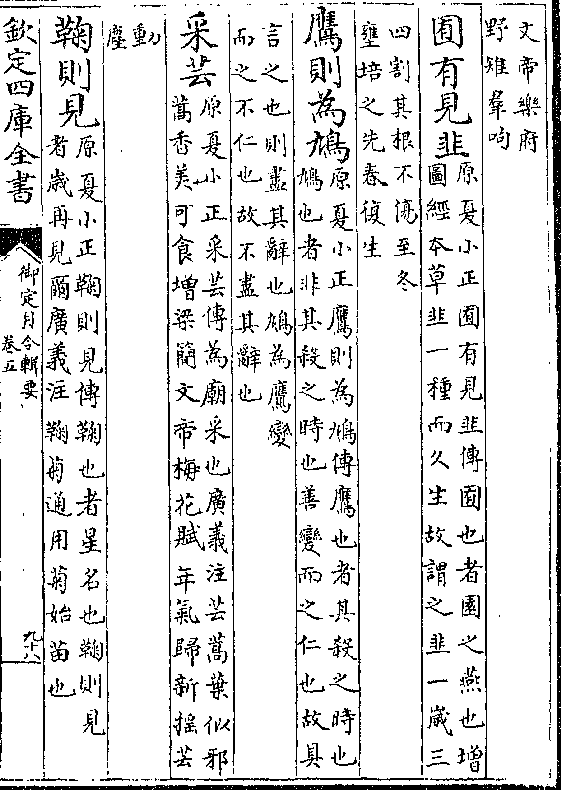 文帝樂府
野雉羣呴
囿有見韭
原夏小正囿有見韭傳囿也者園之燕也增
圖經本草韭一種而久生故謂之韭一嵗三
四割其根不傷至冬
壅培之先春復生
鷹則為鳩
原夏小正鷹則為鳩傳鷹也者其殺之時也
鳩也者非其殺之時也善變而之仁也故具
言之也則盡其辭也鳩為鷹變
而之不仁也故不盡其辭也
采芸
原夏小正采芸傳為廟采也廣義注芸蒿葉似邪
蒿香美可食增梁簡文帝梅花賦年氣歸新揺芸
動
塵
鞠則見
原夏小正鞠則見傳鞠也者星名也鞠則見
者嵗再見爾廣義注鞠菊通用菊始苗也
欽定四庫全書
御定月令輯要
卷五
九十八